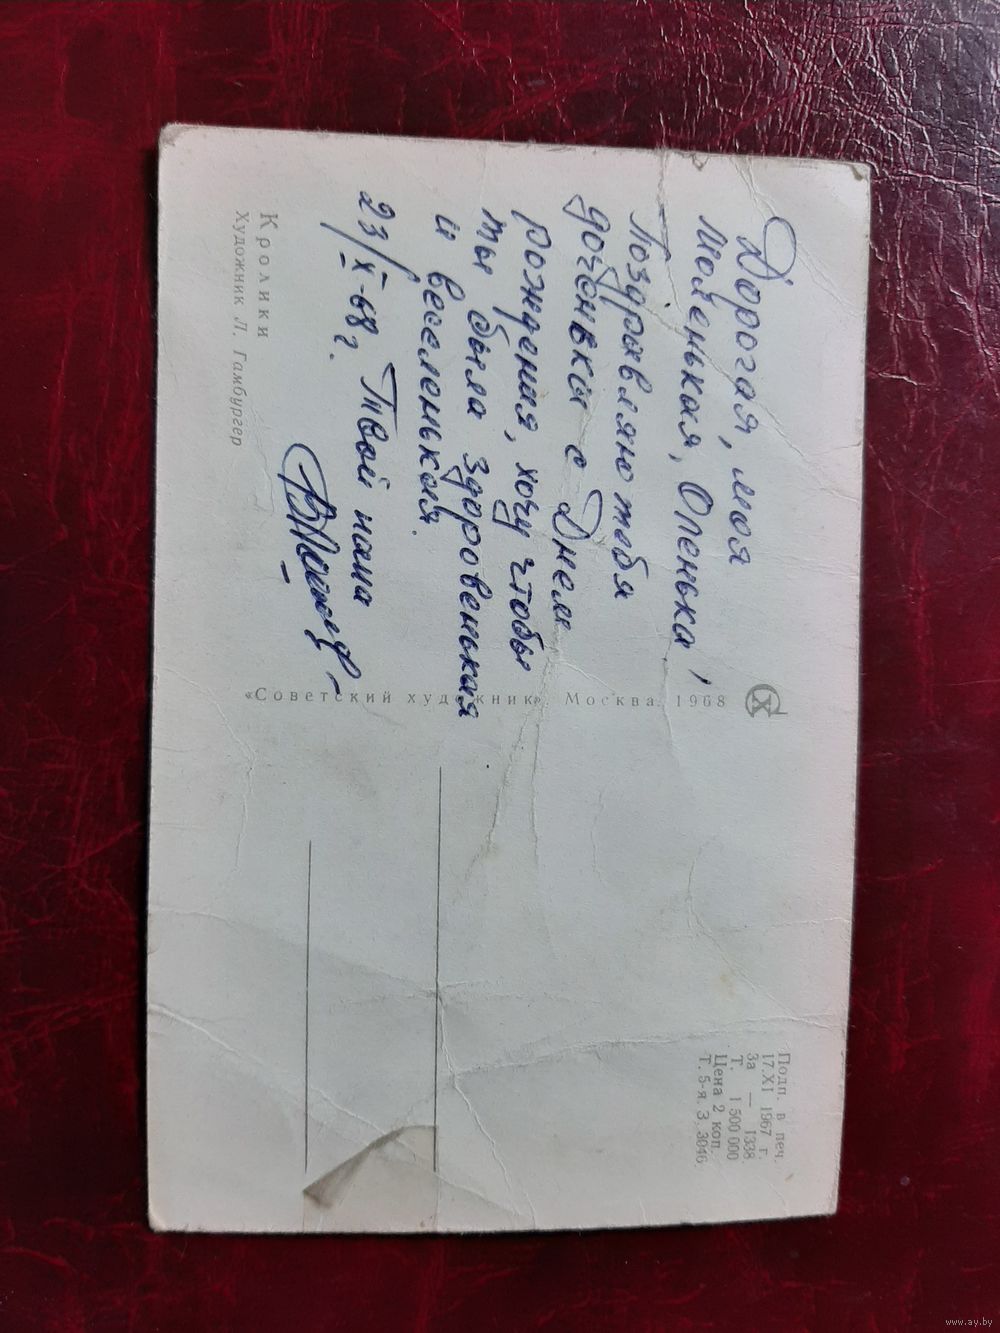 Дорогая, моя
маленькая, Оленька!
Поздравляю тебя
доченька с Днем
рождения, хочу чтобы
ты была здоровенькая
и веселенькая.
23/X-68 г. Твой папа
Кролики
Художник Л. Гамбургер
«Советский художник». Москва. 1968
Подп. в печ.
17.XI 1967 г.
За — 1338.
Т. 1 500 000
Цена 2 коп.
Т. 5-я. З. 3046
www.ay.by